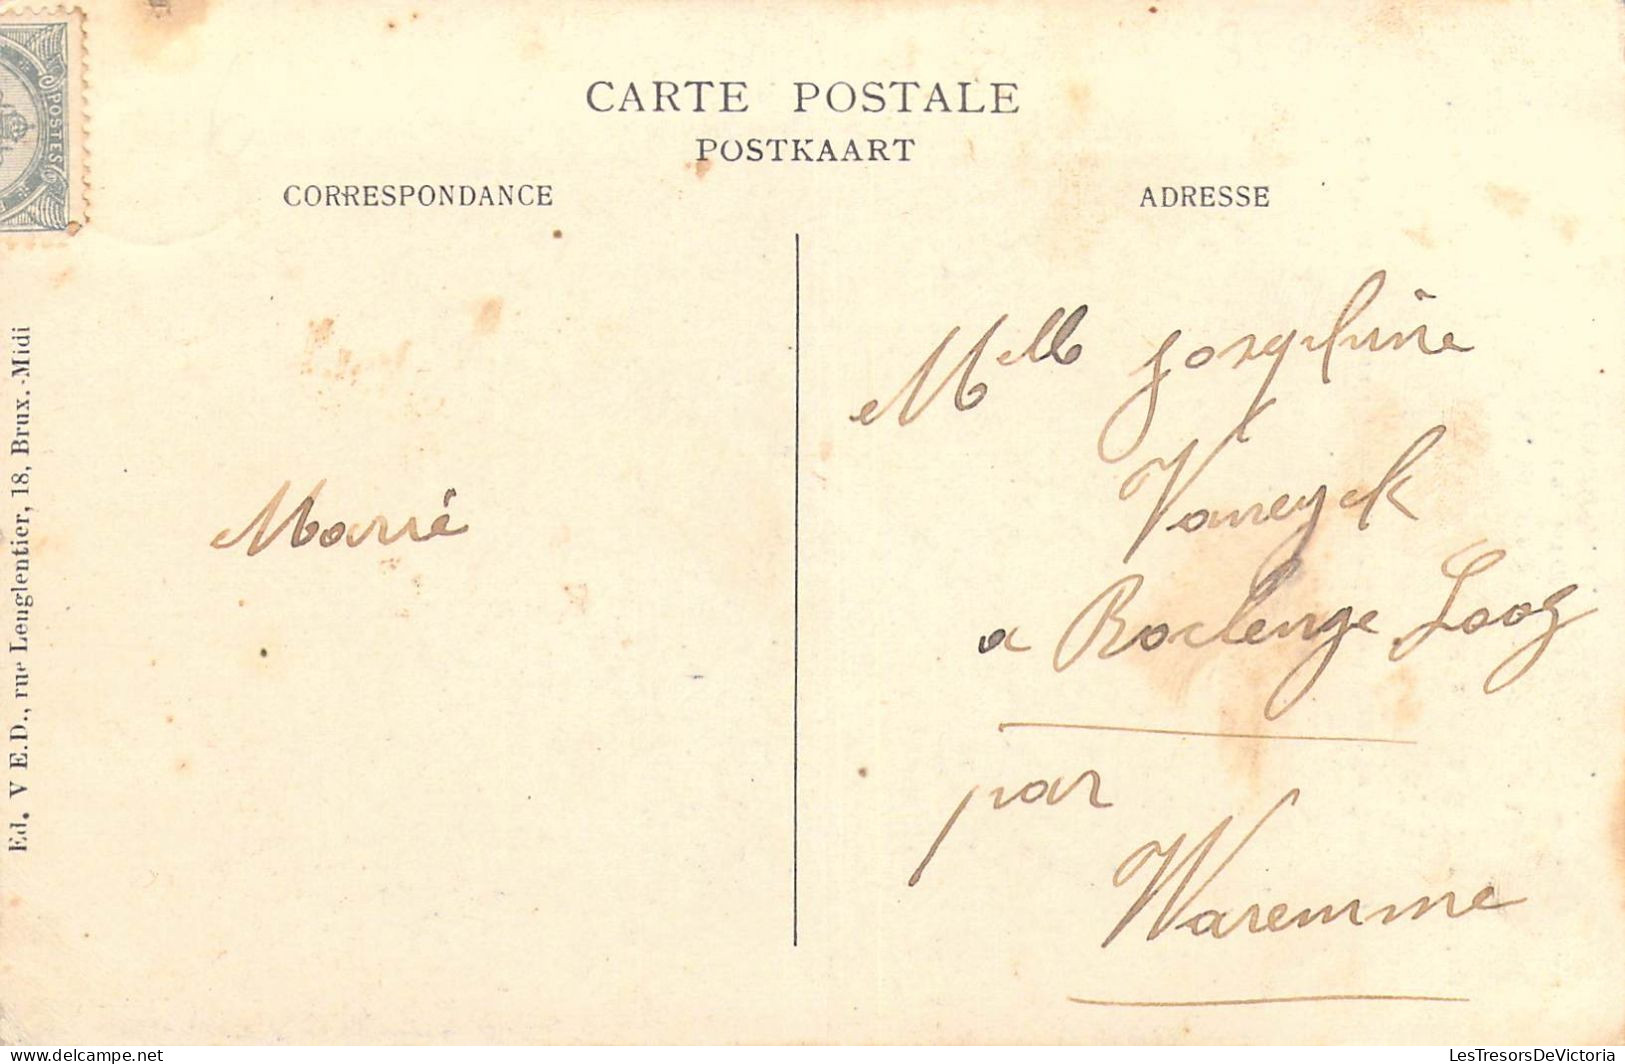 CARTE POSTALE
POSTKAART
CORRESPONDANCE
ADRESSE
POSTES
Ed. V E.D., rue Lenglentier, 18, Brux.-Midi
Marie
Melle Josephine
Vaneyck
a Roclenge Looz
par
Waremme
delcampe.net
LesTresorsDeVictoria